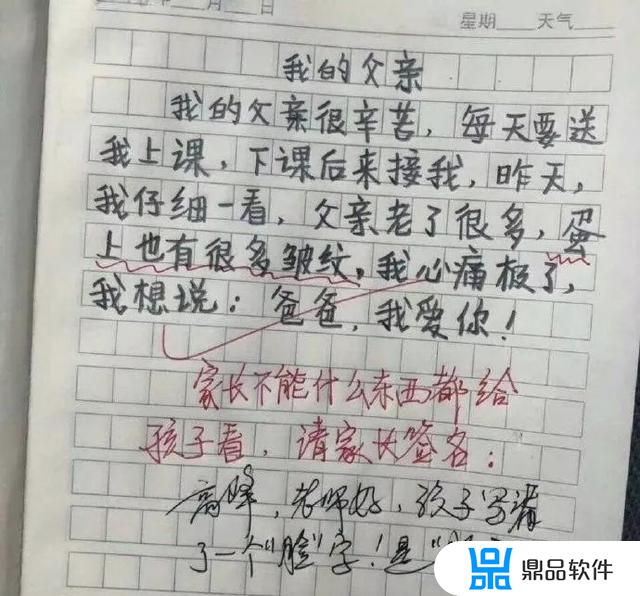 年 月 日
星期 天气
我的父亲
我的父亲很辛苦，每天要送
我上课，下课后来接我，昨天，
我仔细一看，父亲老了很多，蛋
上也有很多皱纹，我心痛极了，
我想说：爸爸，我爱你！
家长不能什么东西都给
孩子看，请家长签名：
高峰，老师好，孩子写漏
了一个"脸"字！是"
鼎品软件